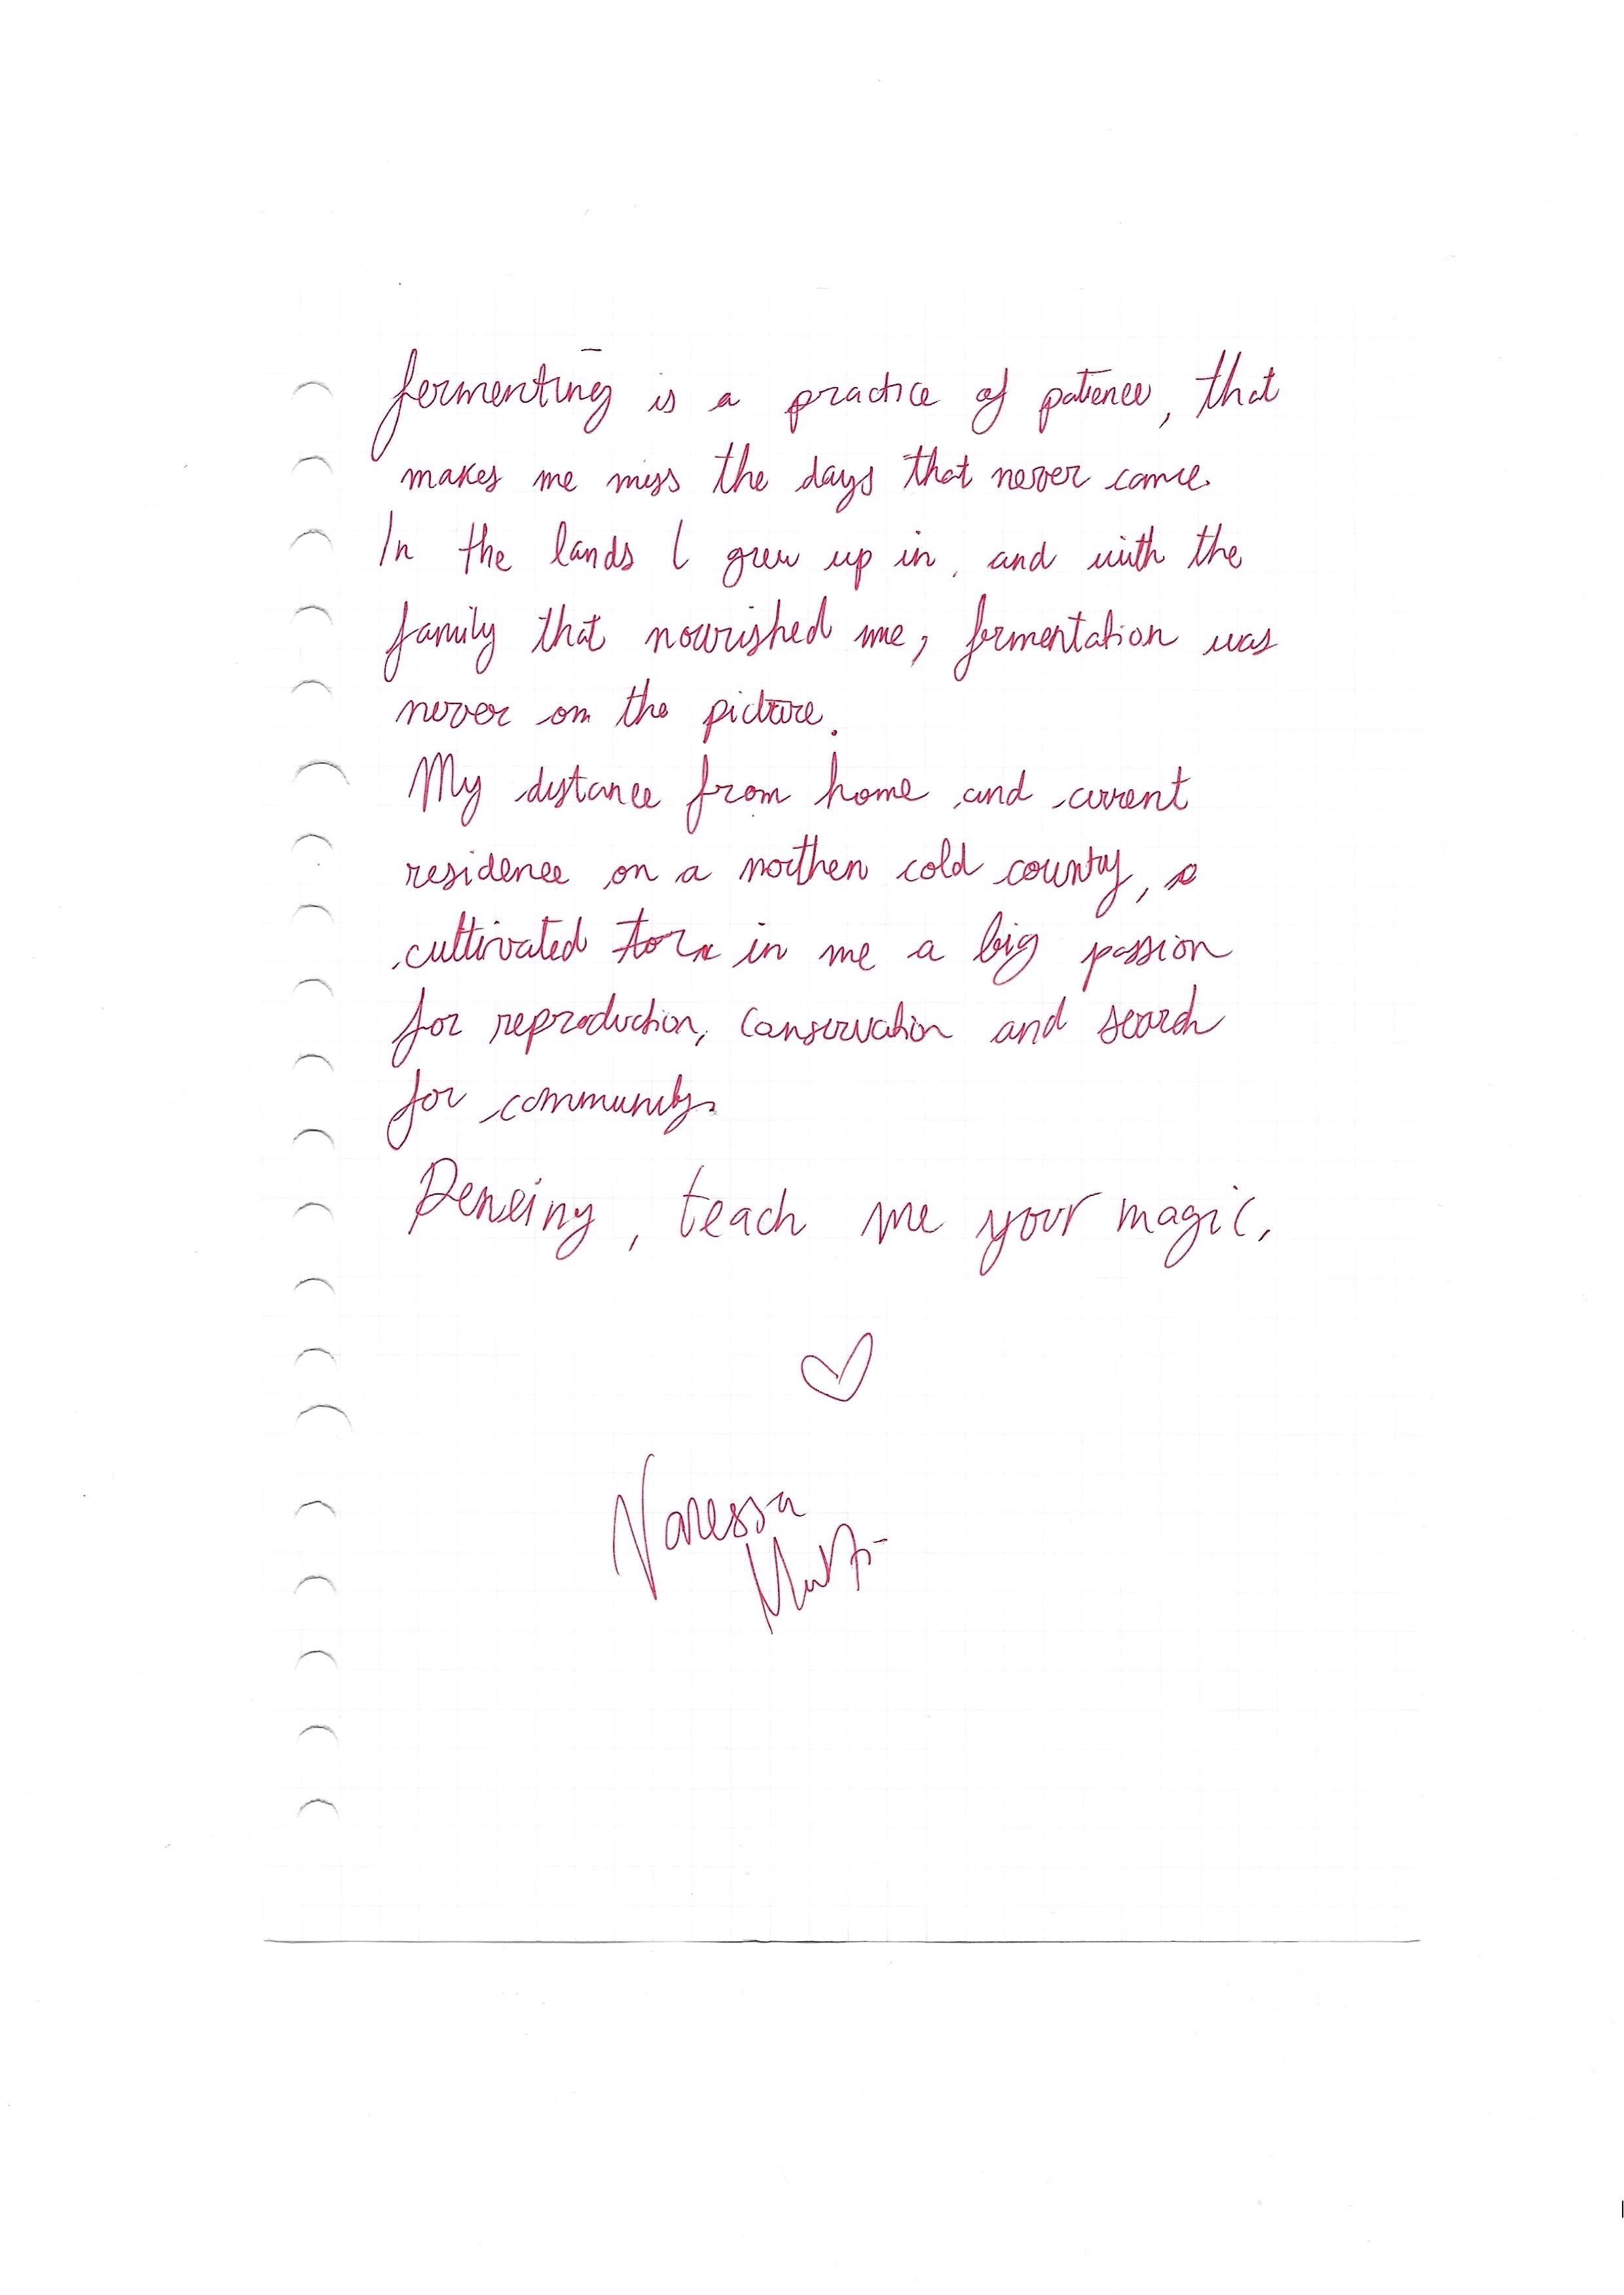 fermenting is a practice of patience, that
makes me miss the days that never came.
In the lands I grew up in, and with the
family that nourished me, fermentation was
never on the picture.
My distance from home and current
residence on a northen cold county,
cultivated in me a big passion
for reproduction, conservation and search
for community.
teach me your magic.
Vanessa